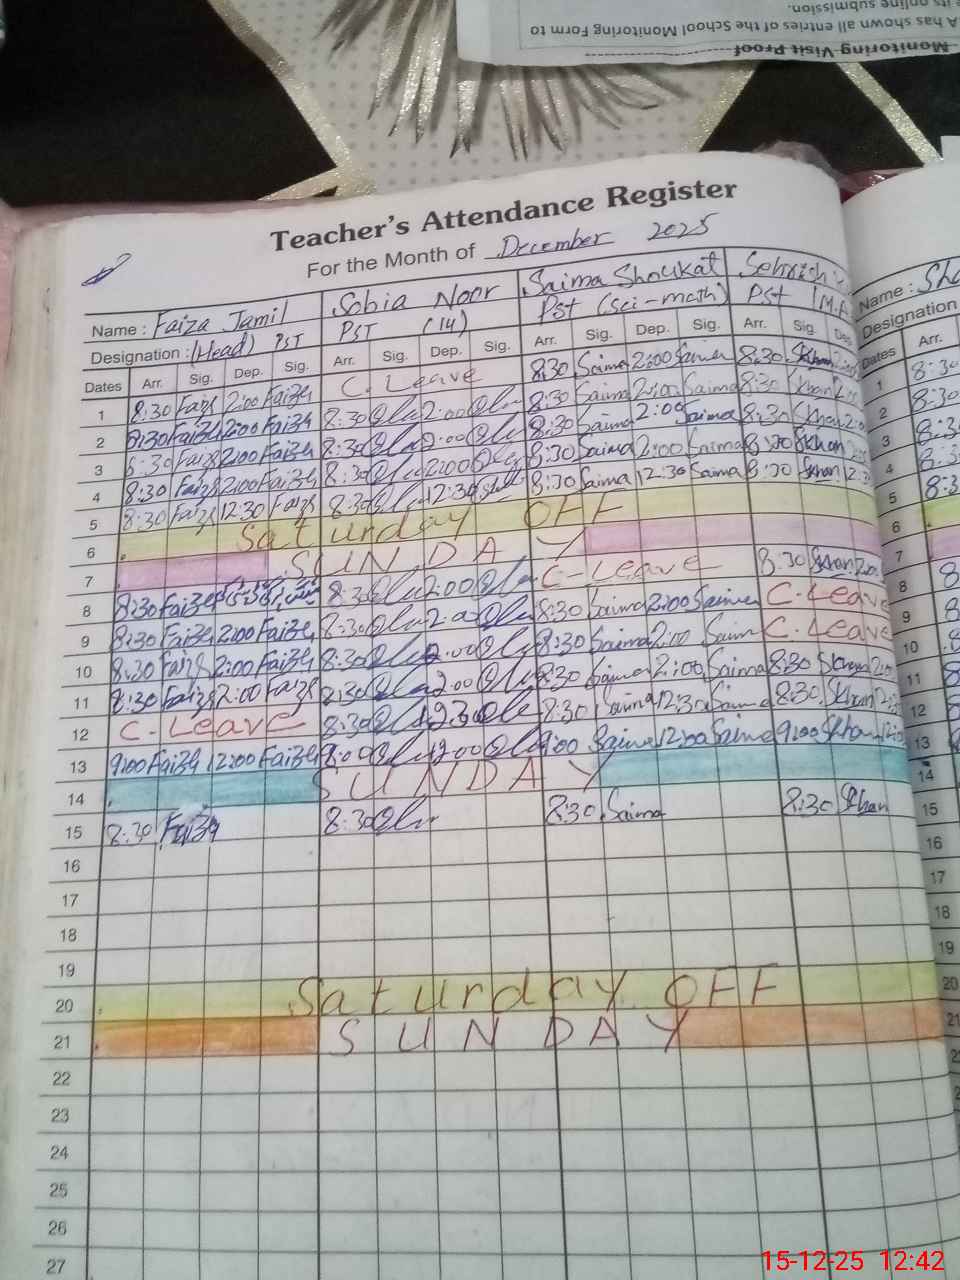 A has shown all entries of the School Monitoring Form to
its online submission.
Monitoring Visit Proof
Teacher's Attendance Register
For the Month of December 2025
Name : Faiza Jamil Sobia Noor Saima Shoukat Sehrish
Designation : (Head) PST PST (14) Pst (Sci-math) Pst (M.A
Dates Arr. Sig. Dep. Sig. Arr. Sig. Dep. Sig. Arr. Sig. Dep. Sig. Arr. Sig. Dep.
1 8:30 Faiza 2:00 Faiza C. Leave 8:30 Saima 2:00 Saima 8:30 Skhan 2:00
2 8:30 Faiza 2:00 Faiza 8:30 2:00 8:30 Saima 2:00 Saima 8:30 Skhan 2:00
3 8:30 Faiza 2:00 Faiza 8:30 2:00 8:30 Saima 2:00 Saima 8:30 Skhan 2:00
4 8:30 Faiza 2:00 Faiza 8:30 2:00 8:30 Saima 2:00 Saima 8:30 Skhan 2:00
5 8:30 Faiza 12:30 Faiza 8:30 12:30 8:30 Saima 12:30 Saima 8:30 Skhan 12:30
6 Saturday OFF
7 SUNDAY
8 8:30 Faiza 8:30 2:00 C-Leave 8:30 Skhan 2:00
9 8:30 Faiza 2:00 Faiza 8:30 2:00 8:30 Saima 2:00 Saima C. Leave
10 8:30 Faiza 2:00 Faiza 8:30 2:00 8:30 Saima 2:00 Saima C. Leave
11 8:30 Faiza 2:00 Faiza 8:30 2:00 8:30 Saima 2:00 Saima 8:30 Skhan 2:00
12 C. Leave 8:30 12:30 8:30 Saima 12:30 Saima 8:30 Skhan 12:30
13 9:00 Faiza 12:00 Faiza 9:00 12:00 9:00 Saima 12:00 Saima 9:00 Skhan 12:00
14 SUNDAY
15 8:30 Faiza 8:30 8:30 Saima 8:30 Skhan
16
17
18
19
20 Saturday OFF
21 SUNDAY
22
23
24
25
26
27
Name : Sha
Designation
Dates Arr.
1 8:30
2 8:30
3 8:30
4 8:30
5 8:30
6
7
8
9
10
11
12
13
14
15
16
17
18
19
20
21
15-12-25 12:42